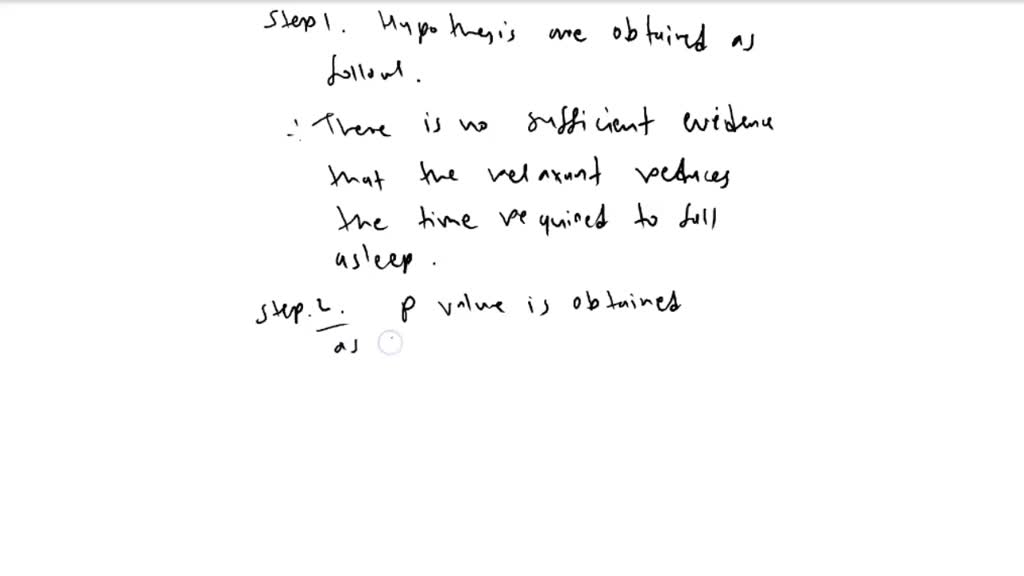 Step 1. Hypothesis are obtained as
follows.
∴ There is no sufficient evidence
that the relaxant reduces
the time required to fall
asleep.
Step. 2. P value is obtained
as